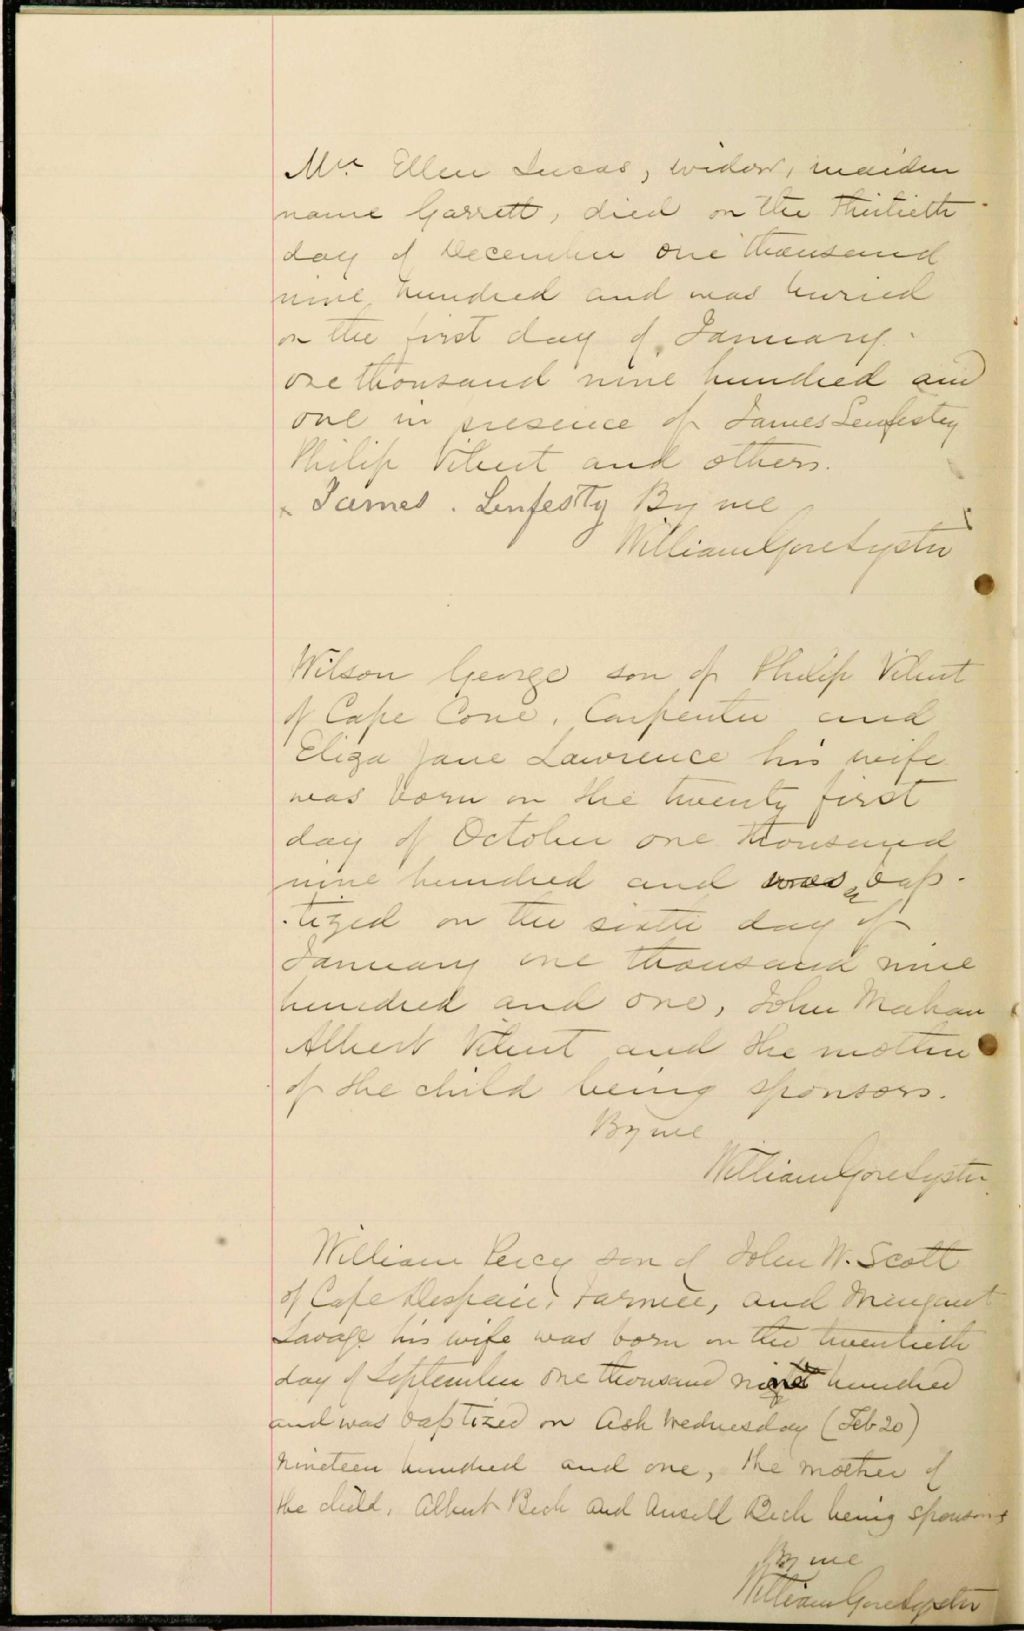 Mrs Ellen Lucas, widow, maiden
name Garrett, died on the thirtieth
day of December one thousand
nine hundred and was buried
on the first day of January
one thousand nine hundred and
one in presence of James Lenfestey
Philip Vibert and others.
x James . Lenfestty By me
William Gore Lyster
Wilson George son of Philip Vibert
of Cape Cove, Carpenter and
Eliza Jane Lawrence his wife
was born on the twenty first
day of October one thousand
nine hundred and was bap-
-tized on the sixth day of
January one thousand nine
hundred and one, John Mahan
Albert Vibert and the mother
of the child being sponsors.
By me
William Gore Lyster
William Percy son of John W. Scott
of Cape Despair, Farmer, and Margaret
Savage his wife was born on the twentieth
day of September one thousand nine hundred
and was baptized on Ash Wednesday (Feb 20)
nineteen hundred and one, the mother of
the child, Albert Beck and Ansell Beck being sponsors
By me
William Gore Lyster